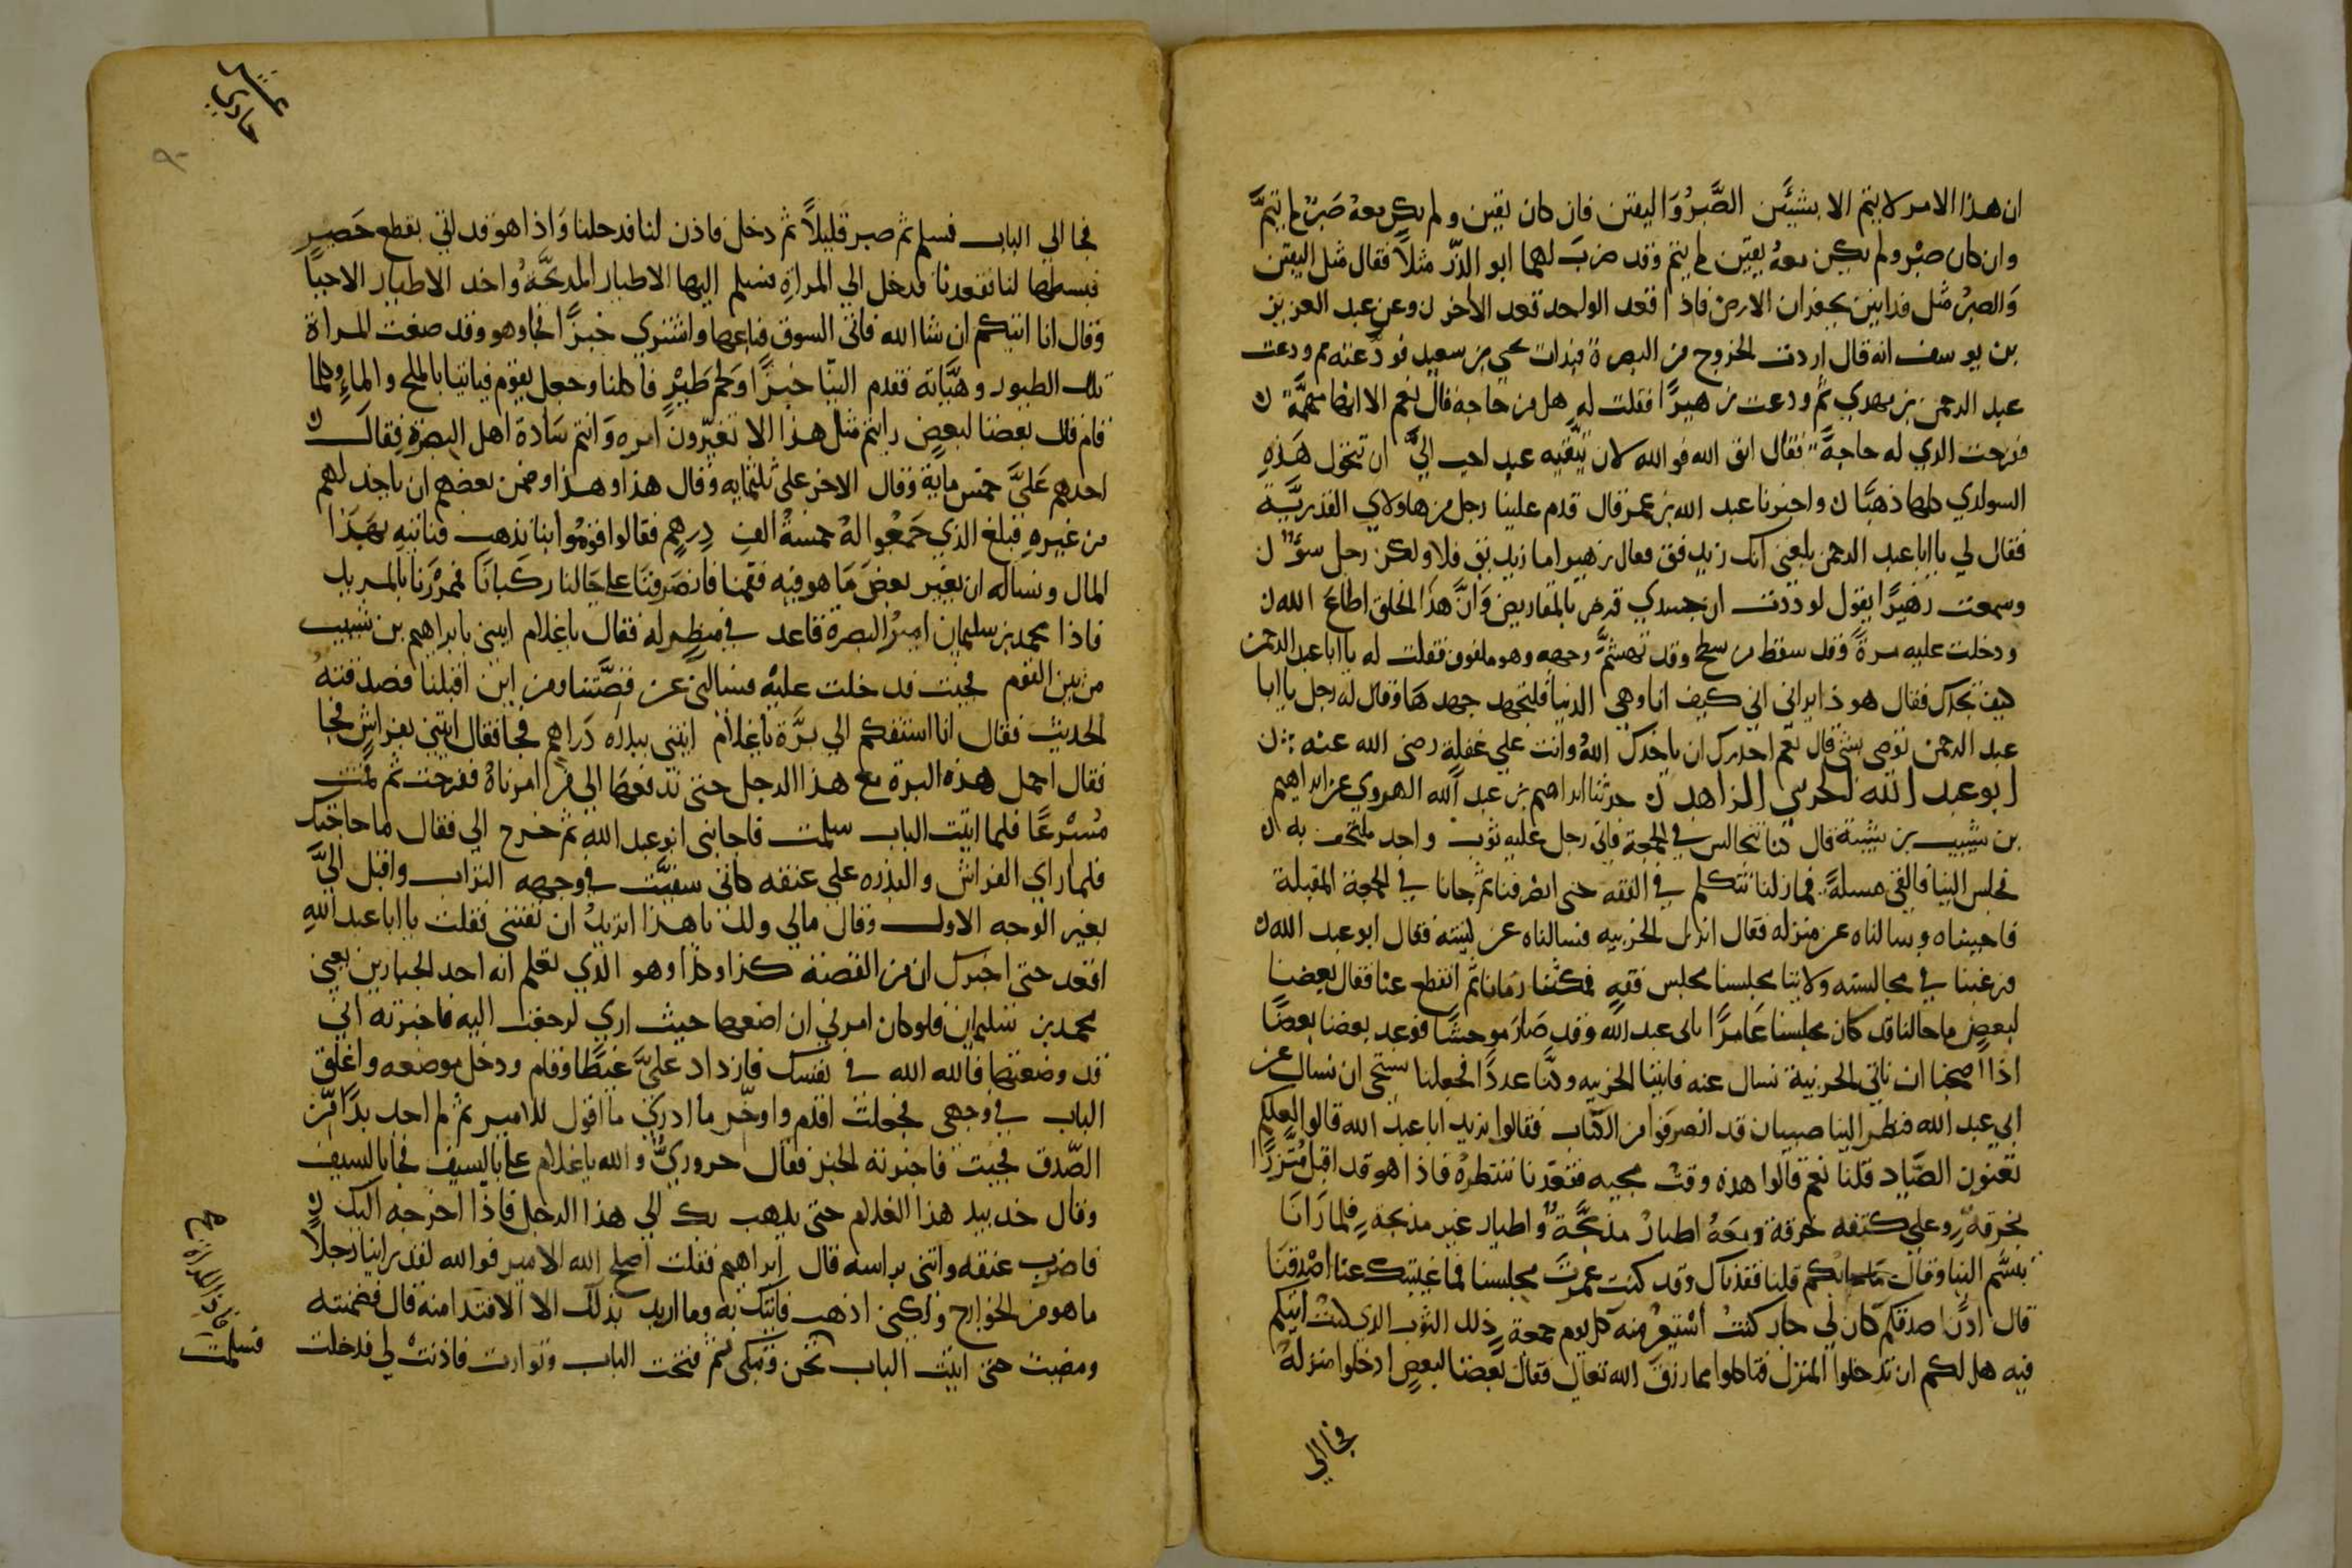 ان هذا الامر لا يتم الا بشيئين الصبر واليقين فان كان يقين ولم يكن معه صبر لم يتم
وان كان صبر ولم يكن معه يقين لم يتم وقد ضرب لهما ابو الدرد مثلا فقال مثل اليقين
والصبر مثل فدانين يحفران الارض فاذا قعد الواحد قعد الاخر ن وعن عبد العزيز
بن يوسف انه قال اردت الخروج من البصرة فبدات بيحيى بن سعيد فودعته ثم ودعت
عبد الرحمن بن مهدي ثم ودعت زهيرا فقلت له هل من حاجة قال نعم الا انها مهمة ن
ففرحت الذي له حاجة فقال اتق الله فوالله لان يتقيه عبد احب الي ان تتحول هذه
السواري كلها ذهبا ن واخبرنا عبد الله بن عمر قال قدم علينا رجل من هاولاي القدرية
فقال لي يا ابا عبد الرحمن بلغني انك زنديق فقال زهير اما زنديق فلا ولكن رجل سوء ن
وسمعت زهيرا يقول لوددت ان جسدي قرض بالمقاريض وان هذا الخلق اطاع الله ن
ودخلت عليه مرة وقد سقط من سطح وقد تهشم وجهه وهو ملفوف فقلت له يا ابا عبد الرحمن
كيف تجدك فقال هو ذا يراني اني كيف انا وهي الدنيا فلتجهد جهدها وقال له رجل يا ابا
عبد الرحمن توصي بشي قال نعم احذرك ان ياخذك الله وانت على غفلة رضي الله عنه ن
ابو عبد الله الحربي الزاهد ن حدثنا ابراهيم بن عبد الله الهروي عن ابراهيم
بن شبيب بن شيبة قال كنا نتجالس في الجمعة فاتى رجل عليه ثوب واحد ملتحف به ن
فجلس الينا فالقى مسلة فما زلنا نتكلم في الفقه حتى انصرفنا ثم جانا في الجمعة المقبلة
فاحببناه وسالناه عن منزله فقال انزل الحربيه فسالناه عن كنيته فقال ابو عبد الله ن
فرغبنا في مجالسته وراينا مجلسنا مجلس فقه فمكثنا زمانا ثم انقطع عنا فقال بعضنا
لبعض ما حالنا قد كان مجلسنا عامرا بابى عبد الله وقد صار موحشا فوعد بعضنا بعضا
اذا اصبحنا ان ناتي الحربية نسال عنه فاتينا الحربيه وكنا عددا فجعلنا نستحي ان نسال عن
ابي عبد الله فنظر الينا صبيان قد انصرفوا من الكتاب فقالوا نريد ابا عبد الله قالوا لعلكم
تعنون الصياد قلنا نعم قالوا هذه وقت مجيه فقعدنا ننتظره فاذا هو قد اقبل متزرا
بخرقة وعلى كتفه خرقة ومعه اطيار مذبحة واطيار غير مذبحة فلما رانا
تبسم الينا وقال ما جا بكم قلنا فقدناك وقد كنت عمرت مجلسنا فما غيبتك عنا اصدقنا
قال اذن اصدقكم كان لي جار كنت استعير منه كل يوم جمعة ذلك الثوب الذي كنت اتيكم
فيه هل لكم ان تدخلوا المنزل فتاكلوا مما رزق الله تعالى فقال بعضنا لبعض ادخلوا منزله
فجا الي
فجا الي الباب فسلم ثم صبر قليلا ثم دخل فاذن لنا فدخلنا واذا هو قد اتي بقطع حصير
فبسطها لنا فقعدنا فدخل الي المراة فسلم اليها الاطيار المذبحة واخذ الاطيار الاحيا
وقال انا اتيكم ان شا الله فاتى السوق فباعها واشترى خبزا فجا وهو وقد صنعت المراة
تلك الطيور وهيأته فقدم الينا خبزا ولحم طير فاكلنا وجعل يقوم فياتينا بالملح والماء وكلما
قام قال بعضنا لبعض رايتم مثل هذا الا تغيرون امره وانتم سادة اهل البصرة فقال ن
احدهم علي خمس ماية وقال الاخر علي ثلثمايه وقال هذا وهذا وضمن بعضهم ان ياخذ لهم
من غيره فبلغ الذي جمعوا له خمسة الف درهم فقالوا قوموا بنا نذهب فناتيه بهذا
المال ونساله ان يغير بعض ما هو فيه فقمنا فانصرفنا على حالنا ركبانا فمررنا بالمربد
فاذا محمد بن سليمان امير البصرة قاعد في منظر له فقال يا غلام ايتني بابراهيم بن شبيب
من بين القوم فجيت فدخلت عليه فسالني عن قصتنا ومن اين اقبلنا فصدقته
الحديث فقال انا اسبقكم الي بره يا غلام ايتني ببدرة دراهم فجا فقال ايتني بفراش فجا
فقال احمل هذه البدرة مع هذا الرجل حتى تدفعها الى من امرناه ففرحت ثم قمت
مسرعا فلما اتيت الباب سلمت فاجابني ابو عبد الله ثم خرج الي فقال ما حاجتك
فلما راي الفراش والبدره على عنقه كاني سفيت في وجهه التراب واقبل الي
بغير الوجه الاول وقال مالي ولك يا هذا اتريد ان تفتنني فقلت يا ابا عبد الله
اقعد حتى اخبرك ان من القصة كذا وكذا وهو الذي تعلم انه احد الجبارين يعني
محمد بن سليمان فلو كان امرني ان اضعها حيث اري لرجعت اليه فاخبرته اني
قد وضعتها فالله الله في نفسك فازداد علي غيظا وقام ودخل موضعه واغلق
الباب في وجهي فجعلت اقدم واوخر ما ادري ما اقول للامير ثم لم اجد بدا من
الصدق فجيت فاخبرته الخبر فقال حروري والله يا غلام علي بالسيف فجا بالسيف
وقال خذ بيد هذا الغلام حتى يذهب بك الي هذا الرجل فاذا اخرجه اليك ن
فاضرب عنقه واتني براسه قال ابراهيم فقلت اصلح الله الامير فوالله لقد راينا رجلا
ما هو من الخوارج ولكني اذهب فاتيك به وما اريد بذلك الا الافتدا منه قال فضمنته
ومضيت حتى اتيت الباب نحن وتبكى ثم فتحت الباب وتوارت فاذنت لي فدخلت
فسلمت